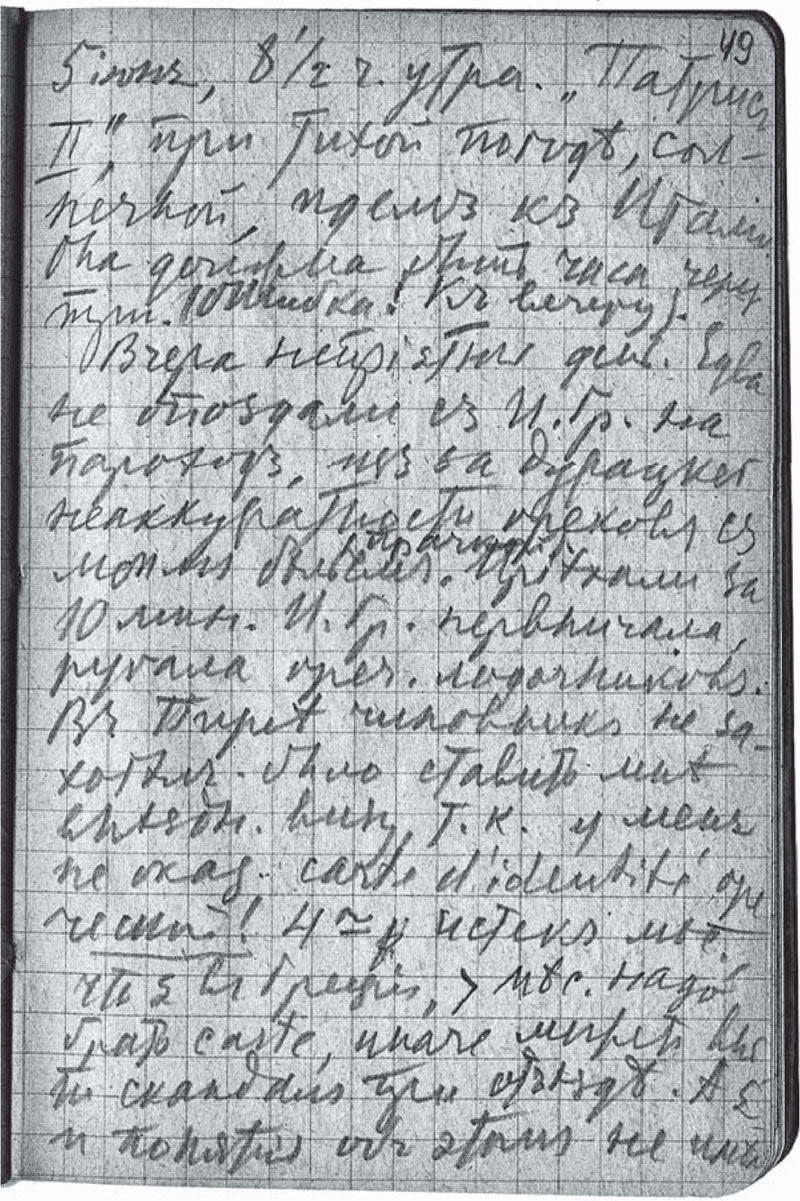 49
5 июня, 8 1/2 ч. утра. „Патрис
II", при тихой погодѣ, сол-
нечной, идемъ къ Итали
быть часа чер
три. (Ошибка! Къ вечеру).
Вчера непріятный день. Едва
не опоздали съ И. Гр. на
пароходъ, изъ за дурацкой
неаккуратности грековъ съ
моимъ бѣльемъ. (прачешной). Пріѣхали за
10 мин. И. Гр. нервничала,
ругала греч. лодочниковъ.
Въ Пиреѣ чиновникъ не за-
хотѣлъ было ставить мнѣ
выѣздн. визу, т. к. у меня
не оказ. carte d'identité гре
ческой! 4-го истекъ мѣс.,
что я въ Греціи, > мѣс. надо
брать carte, иначе можетъ вый
ти скандалъ при отъѣздѣ. А я
и понятія объ этомъ не имѣ